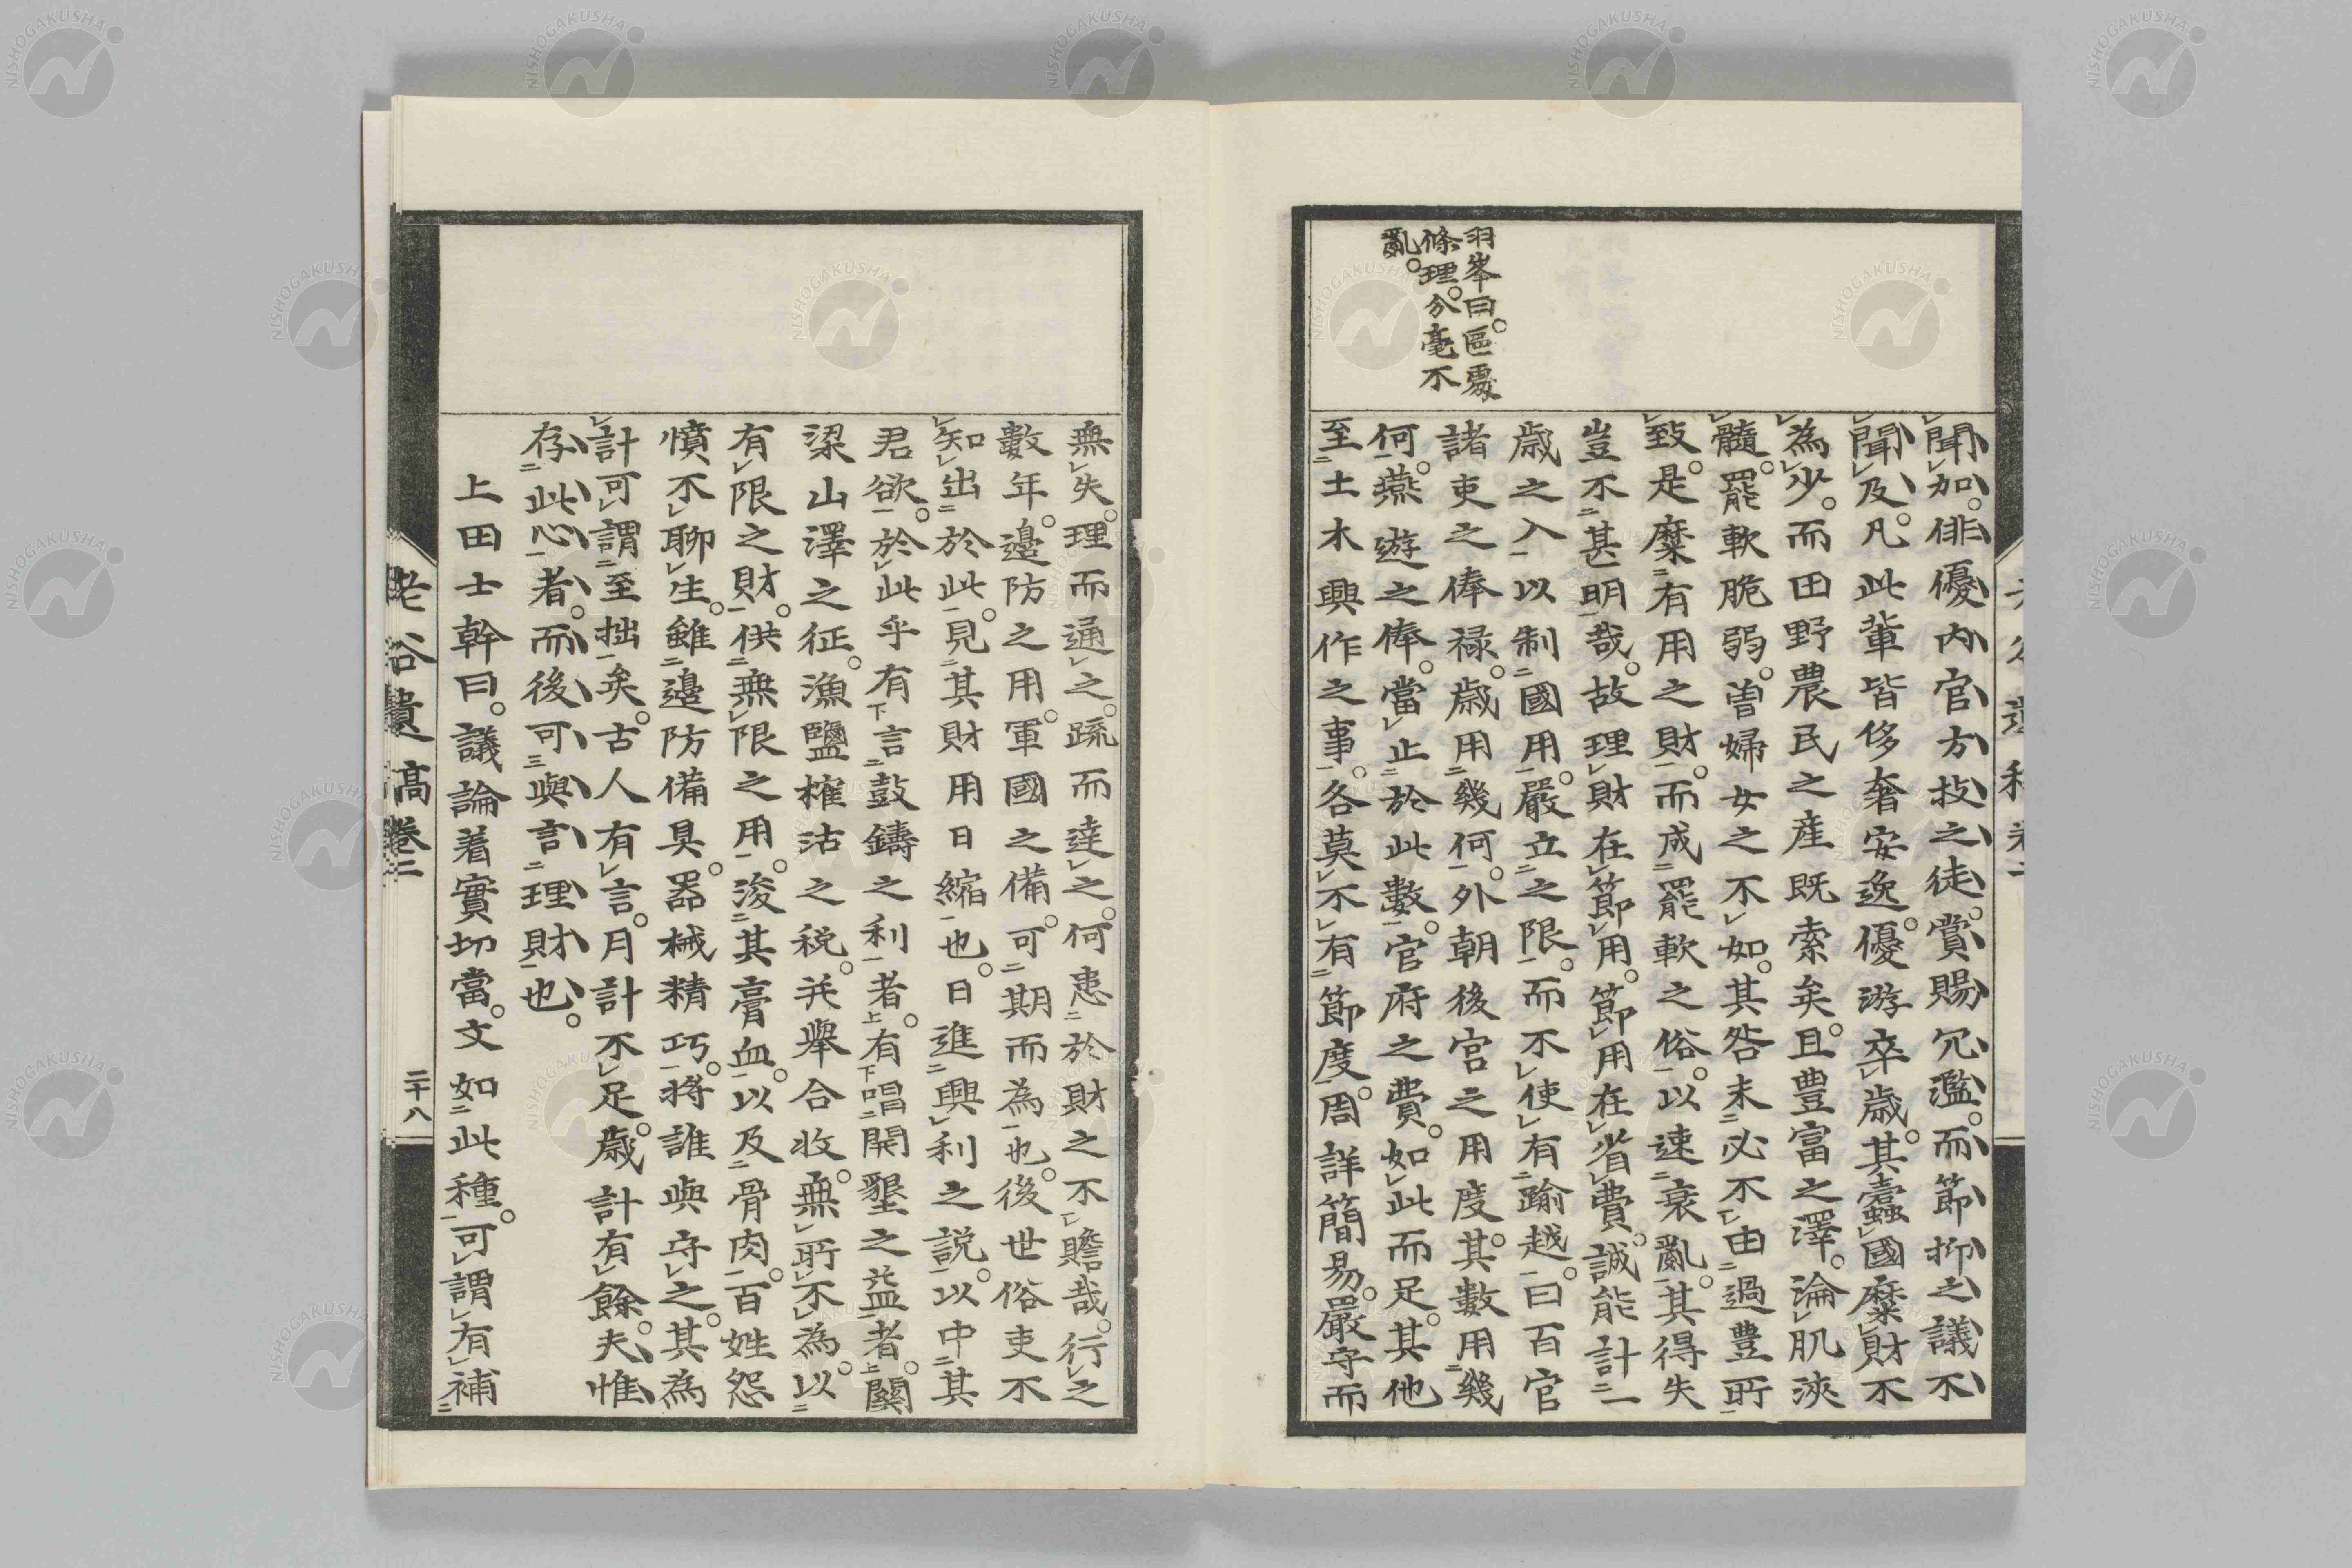 羽峯曰。區處
條理。分毫不
亂。
聞加。俳優内官方技之徒。賞賜冗濫。而節抑之議不
聞及。凡此輩皆侈奢安逸。優游卒歳。其蠹國糜財不
為少。而田野農民之産既索矣。且豊富之澤。淪肌浹
髓。罷軟脆弱。曽婦女之不如。其咎未必不由過豊所
致。是糜有用之財。而成罷軟之俗。以速衰亂。其得失
豈不甚明哉。故理財在節用。節用在省費。誠能計一
歳之入以制國用。嚴立之限。而不使有踰越。曰百官
諸吏之俸禄。歳用幾何。外朝後宮之用度。其數用幾
何。燕遊之俸。當止於此數。官府之費。如此而足。其他
至土木興作之事。各莫不有節度。周詳簡易。嚴守而
無失。理而通之。疏而達之。何患於財之不贍哉。行之
數年。邊防之用。軍國之備。可期而為也。後世俗吏不
知出於此。見其財用日縮也。日進興利之説。以中其
君欲。於此乎有言鼓鑄之利者。有唱開墾之益者。關
梁山澤之征。漁鹽榷沽之税。并舉合收。無所不為。以
有限之財。供無限之用。浚其膏血。以及骨肉。百姓怨
憤不聊生。雖邊防備具。器械精巧。將誰與守之。其為
計可謂至拙矣。古人有言。月計不足。歳計有餘。夫惟
存此心者。而後可與言理財也。
上田士幹曰。議論着實切當。文如此種。可謂有補
老谷遺稿卷二
二十八